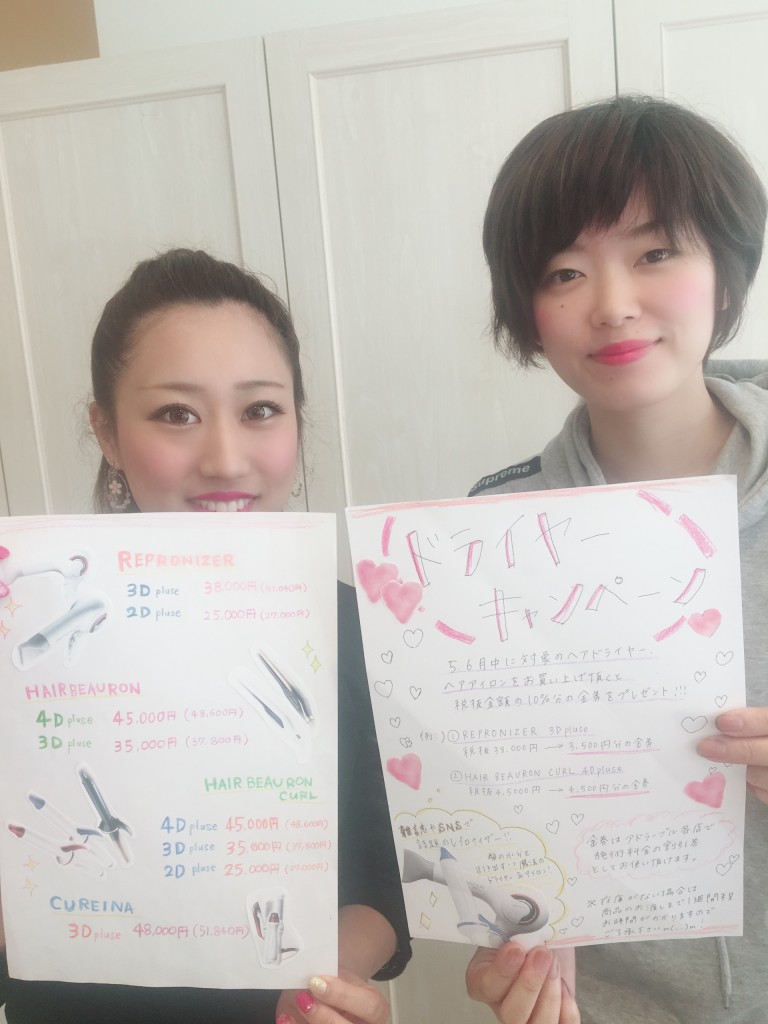 supreme
REPRONIZER
3D pluse 38,000円 (41,040円)
2D pluse 25,000円 (27,000円)
HAIRBEAURON
4D pluse 45,000円 (48,600円)
3D pluse 35,000円 (37,800円)
HAIRBEAURON
CURL
4D pluse 45,000円 (48,600円)
3D pluse 35,000円 (37,800円)
2D pluse 25,000円 (27,000円)
CUREINA
3D pluse 48,000円 (51,840円)
ドライヤー
キャンペーン
5.6月中に対象のヘアドライヤー、
ヘアアイロンをお買い上げ頂くと
税抜金額の10%分の金券をプレゼント!!!
(例)①REPRONIZER 3D pluse
税抜 38,000円 → 3,500円分の金券
②HAIR BEAURON CURL 4D pluse
税抜 4,5000円 → 4,500円分の金券
雑誌やSNSで
話題のレプロナイザー!!
髪の
引き出す!!魔法の
ドライヤー&アイロン!
金券はアドラーブル各店で
施術料金の割引券
としてお使い頂けます。
※在庫がない場合は
商品のお渡しまで1週間
お時間がかかりますので
ご了承下さいm(_ _)m!